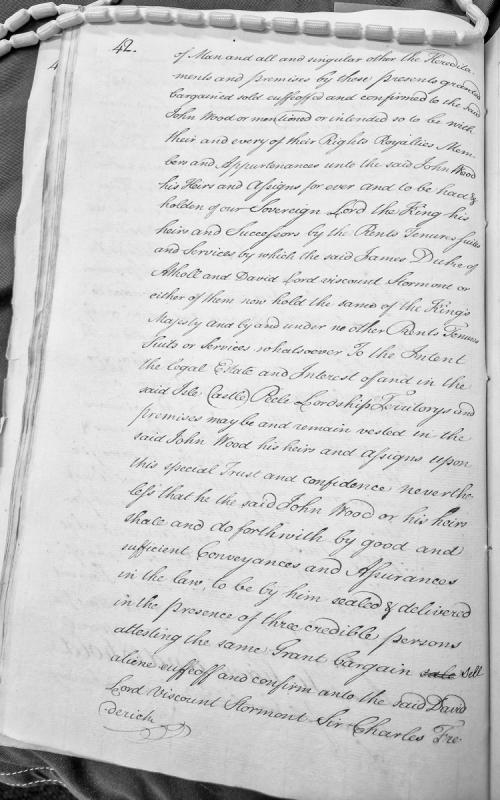 42.
of Man and all and singular other the Heredita-
ments and premises by these presents granted
bargained sold enffeoffed and confirmed to the said
John Wood or mentioned or intended so to be with
their and every of their Rights Royalties Mem-
bers and Appurtenances unto the said John Wood
his Heirs and Assigns for ever and to be had &
holden of our Sovereign Lord the King his
heirs and Successors by the Rents Tenures Suits
and Services by which the said James Duke of
Atholl and David Lord viscount Stormont or
either of them now hold the same of the King's
Majesty and by and under no other Rents Tenures
Suits or Services whatsoever To the Intent
the legal Estate and Interest of and in the
said Isle Castle Pele Lordship Territorys and
premises may be and remain vested in the
said John Wood his heirs and Assigns upon
this special Trust and confidence neverthe
less that he the said John Wood or his heirs
shale and do forthwith by good and
sufficient Conveyances and Assurances
in the law, to be by him sealed & delivered
in the presence of three credible persons
attesting the same Grant bargain sale sell
aliene enffeoff and confirm unto the said David
Lord Viscount Stormont Sir Charles Fre-
derick